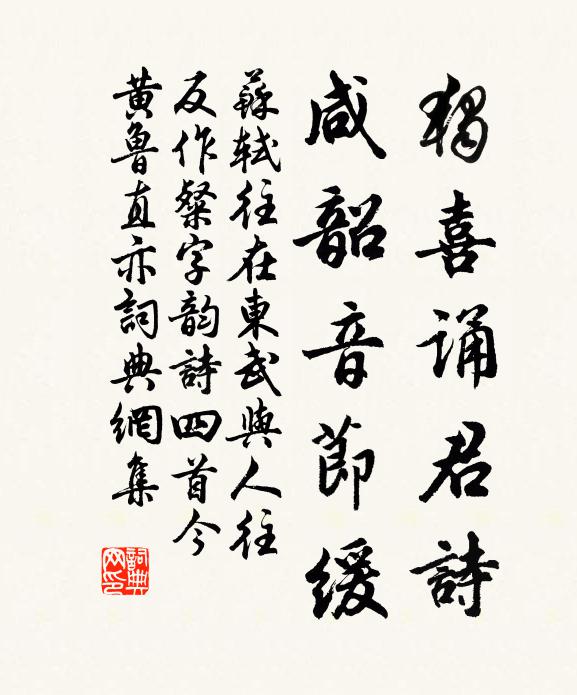 獨喜誦君詩
咸韶音節緩
蘇軾往在東武與人往
反作粲字韵詩四首今
黃魯直亦詞典網集
詞典网印